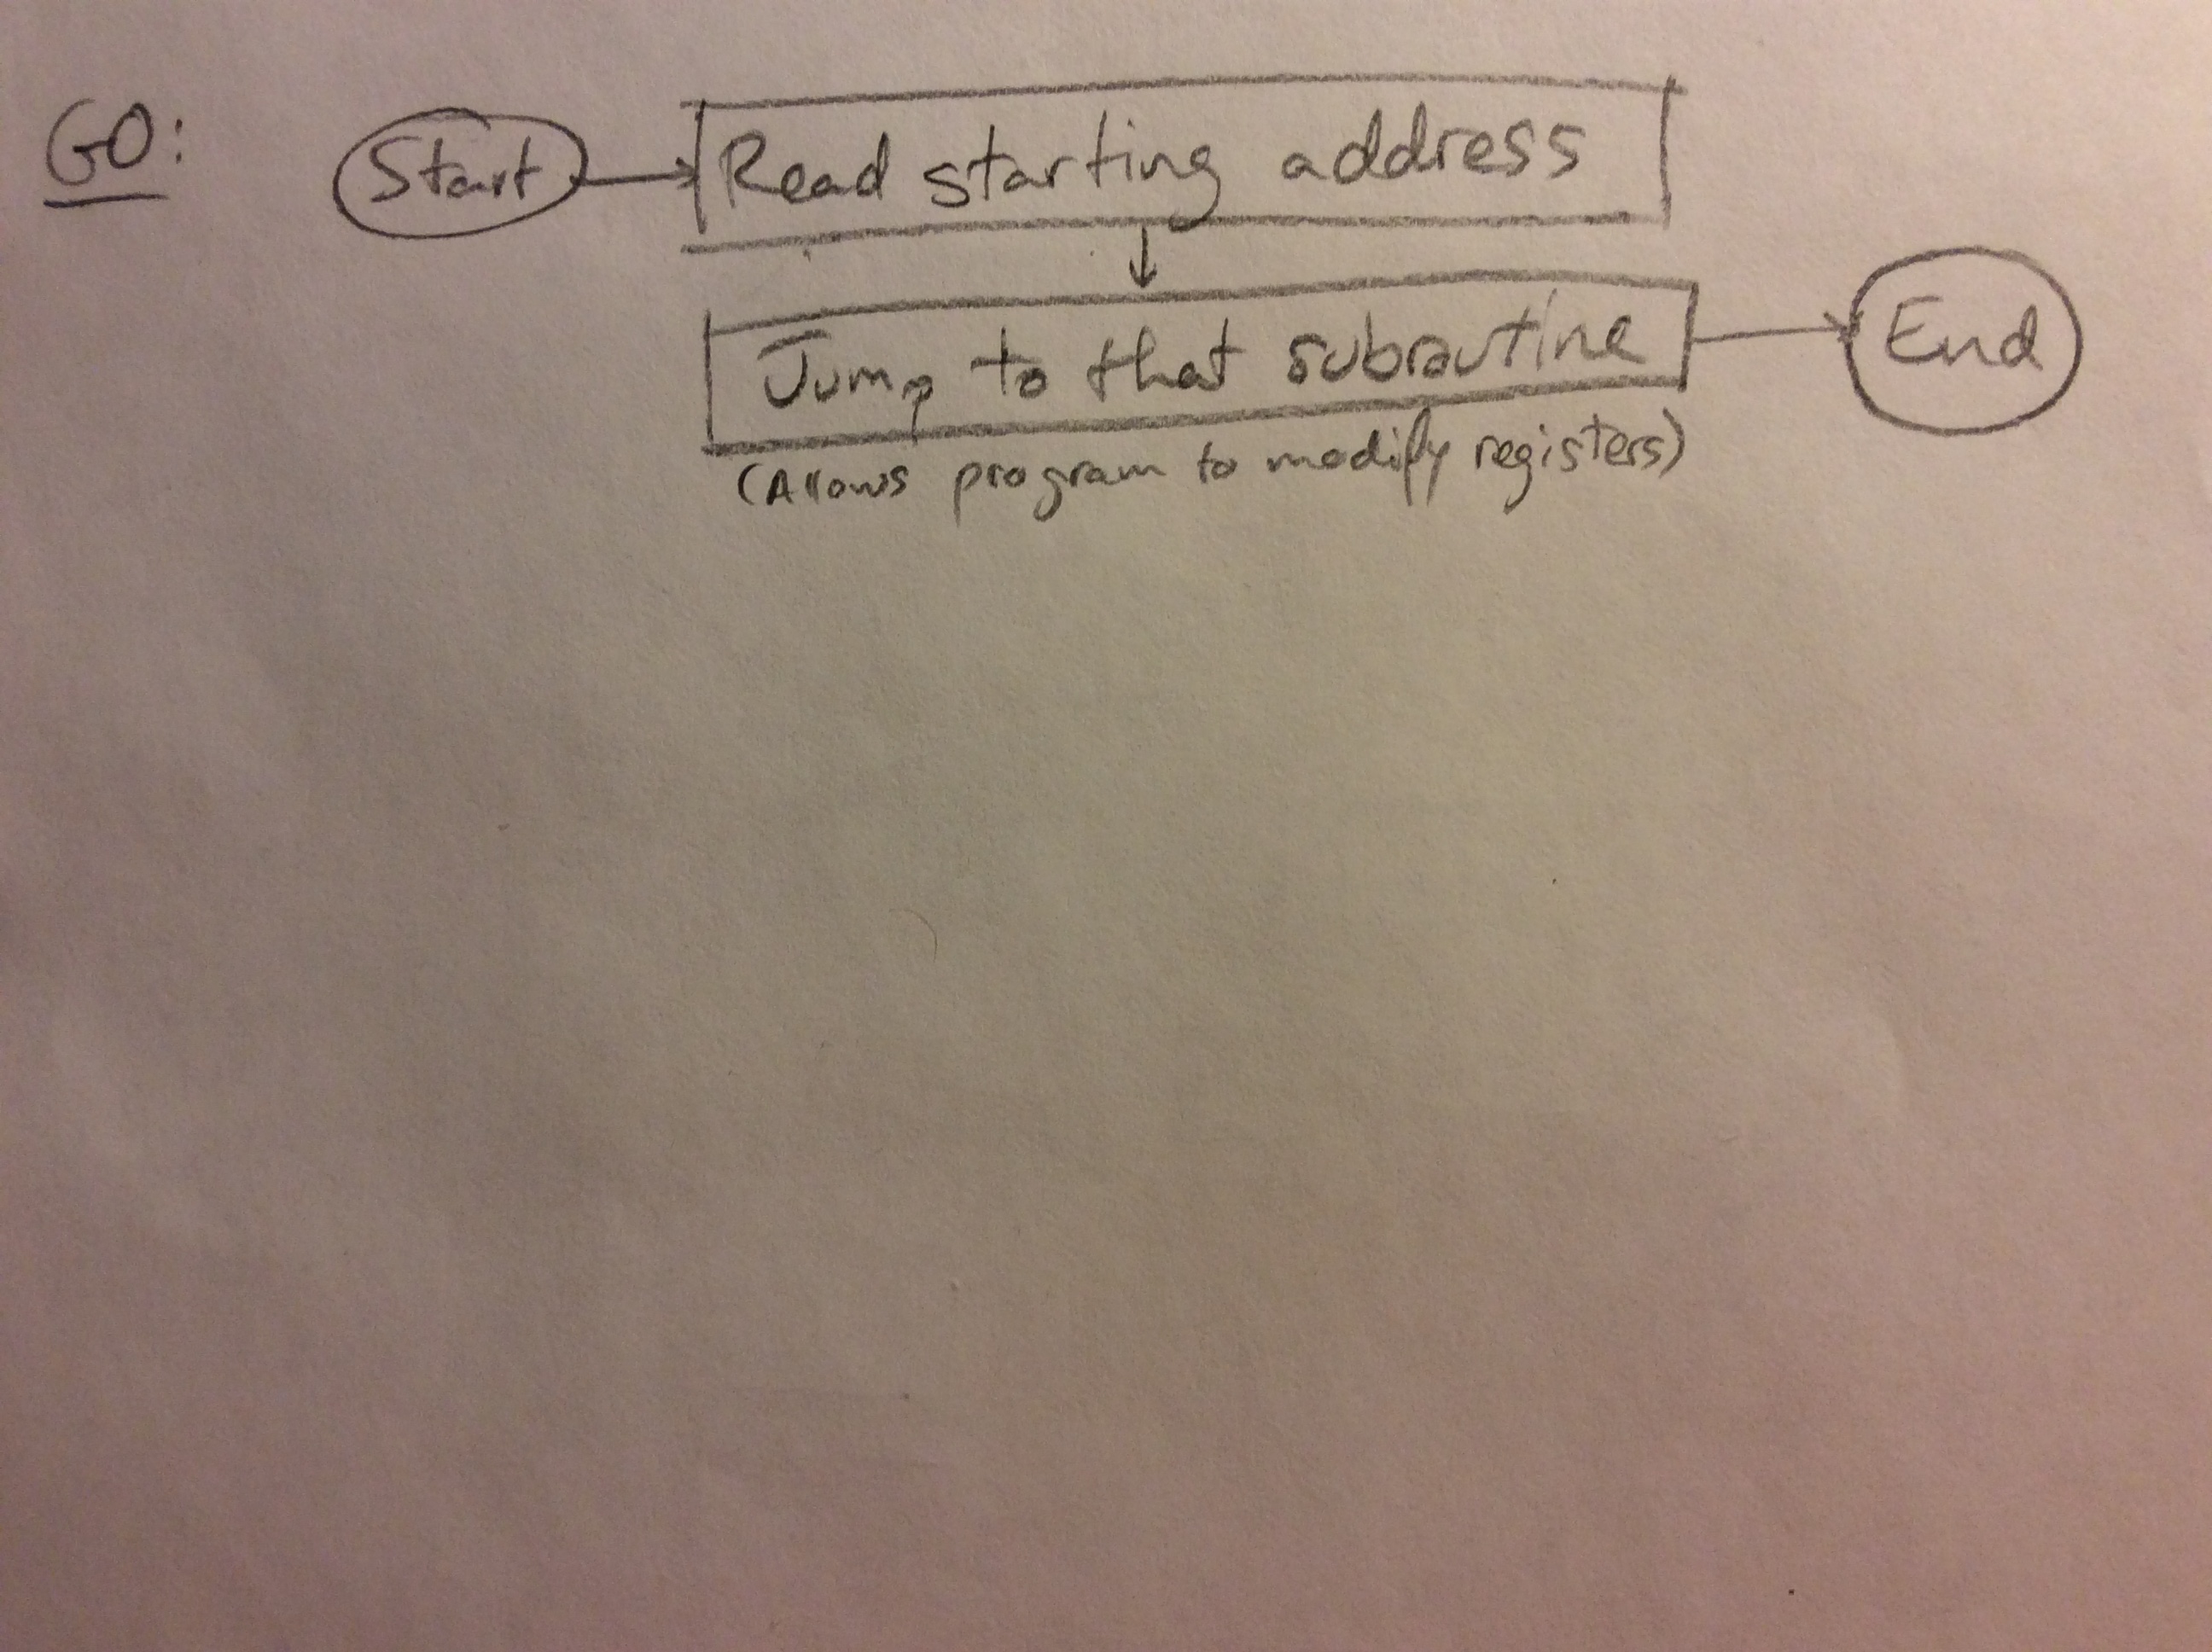 GO:
Start
Read starting address
Jump to that subroutine
End
(Allows program to modify registers)